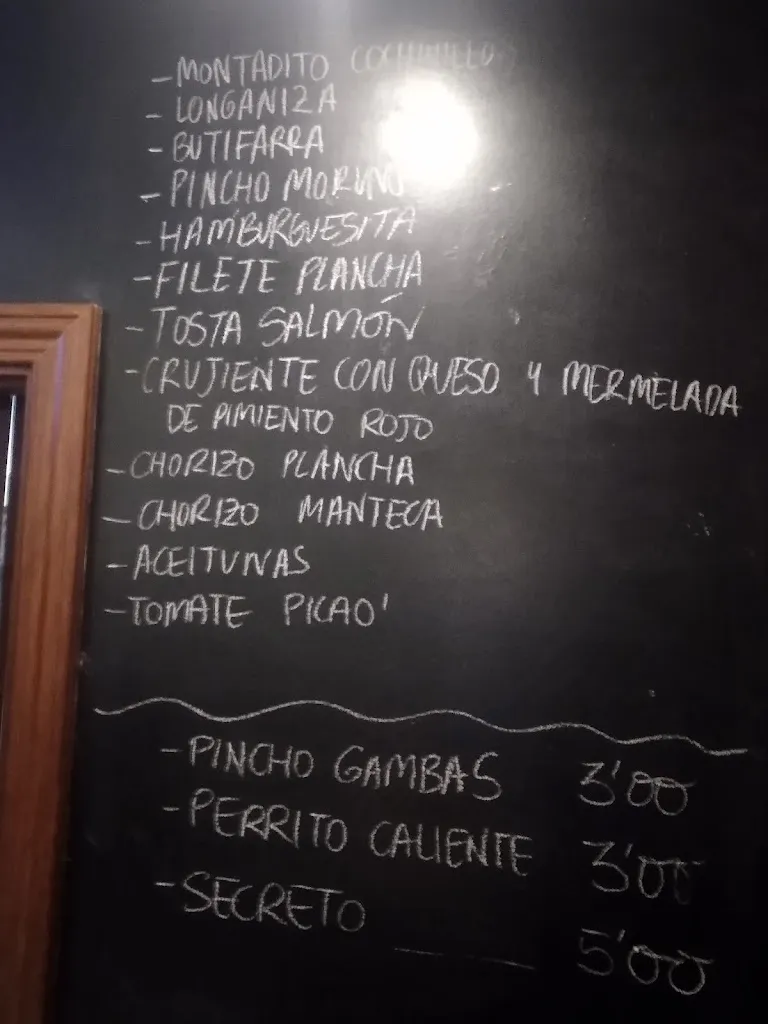 - MONTADITO COCHINILLO
- LONGANIZA
- BUTIFARRA
- PINCHO MORUNO
- HAMBURGUESITA
- FILETE PLANCHA
- TOSTA SALMÓN
- CRUJIENTE CON QUESO Y MERMELADA
DE PIMIENTO ROJO
- CHORIZO PLANCHA
- CHORIZO MANTECA
- ACEITUNAS
- TOMATE PICAO'
- PINCHO GAMBAS 3'00
- PERRITO CALIENTE 3'00
- SECRETO 5'00